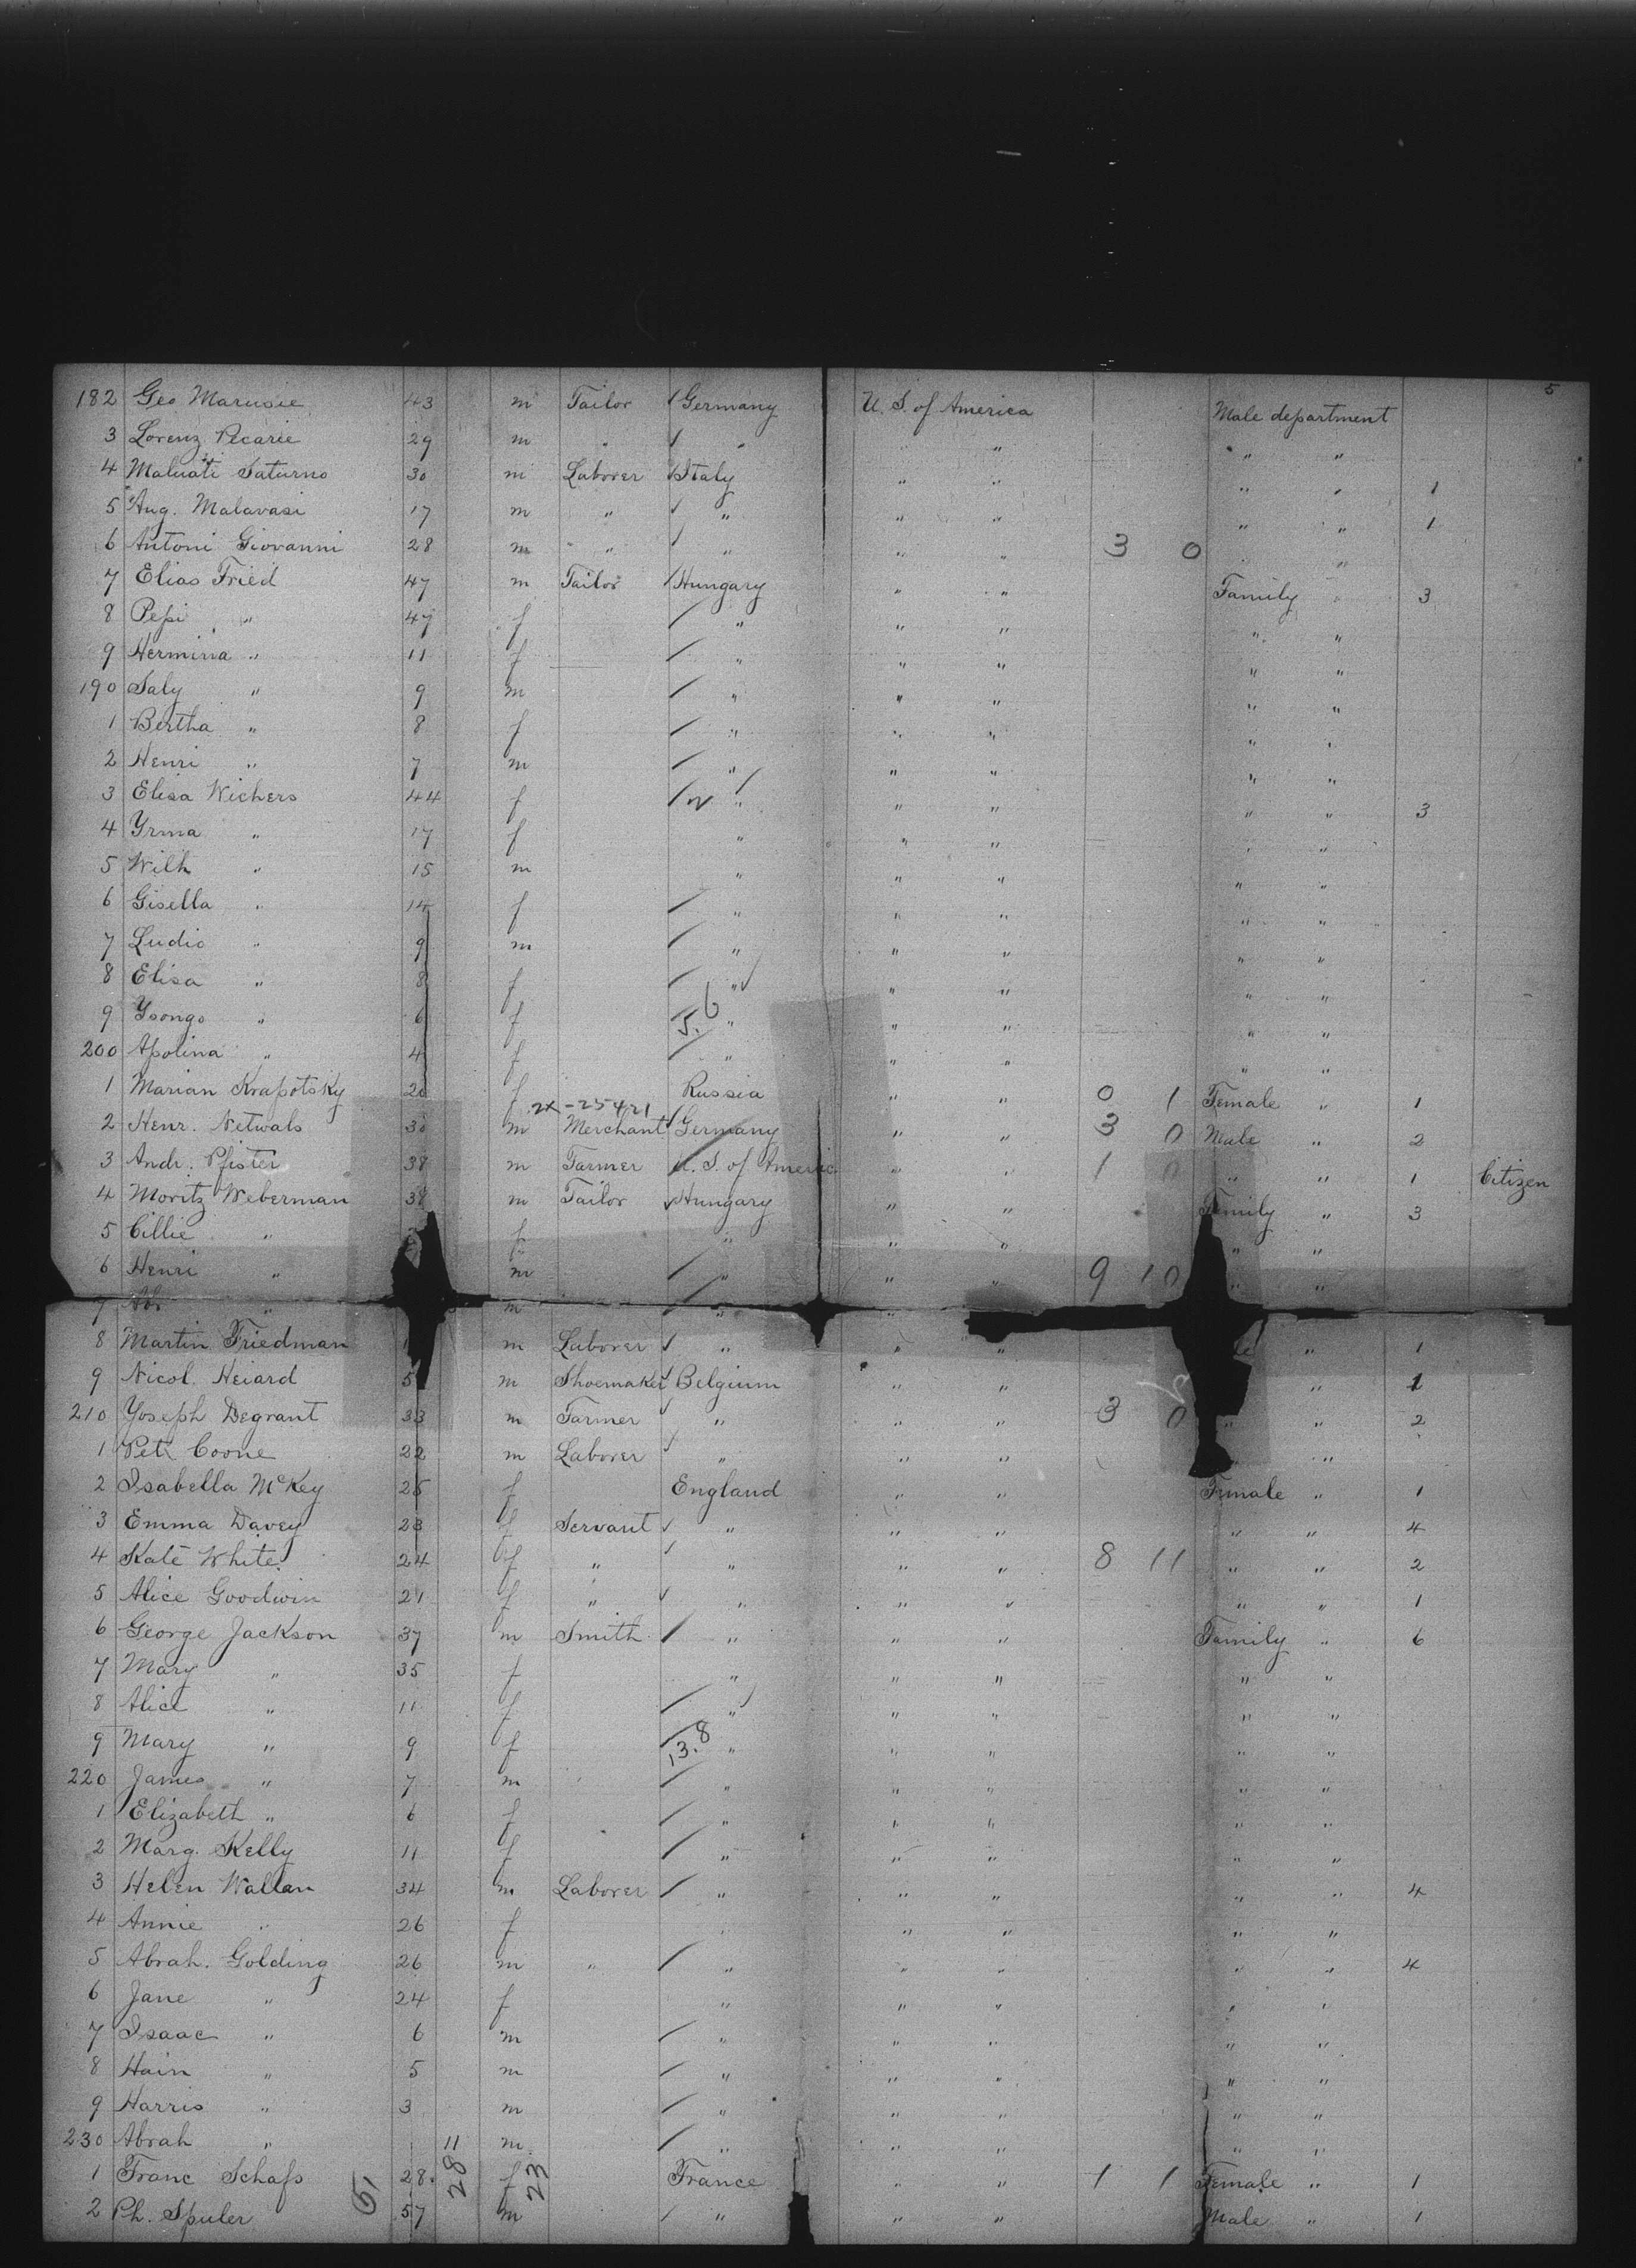 5
182 Geo Marusie 43 m Tailor / Germany U. S. of America Male department
3 Lorenz Pecarie 29 m " / " " " "
4 Maluati Saturno 30 m Laborer / Italy " " " " 1
5 Aug. Malavasi 17 m " / " " " " " 1
6 Antoni Giovanni 28 m " / " " " 3 0 " "
7 Elias Fried 47 m Tailor / Hungary " " Family " 3
8 Pepi " 47 f / " " " " "
9 Hermina " 11 f / " " " " "
190 Saly " 9 m / " " " " "
1 Bertha " 8 f / " " " " "
2 Henri " 7 m / " " " " "
3 Elisa Wichers 44 f / " " " " " 3
4 Yrma " 17 f " " " " "
5 Wilh " 15 m " " " " "
6 Gisella " 14 f / " " " " "
7 Ludio " 9 m / " " " " "
8 Elisa " 8 f / " " " " "
9 Ysongo " 6 f 5.6 " " " " "
200 Apolina " 4 f / " " " " "
1 Marian Krapotsky 20 f Russia " " 0 1 Female " 1
2x-25421
2 Henr. Netwals 30 m Merchant / Germany " " 3 0 Male " 2
3 Andr. Pfister 38 m Farmer U. S. of America " " 1 0 " " 1 Citizen
4 Moritz Weberman 38 m Tailor ✓ Hungary " " Family " 3
5 Cillie " f " " " " "
6 Henri " m / " " " 9 10 " "
7 " m / " "
8 Martin Friedman m Laborer ✓ " " " " 1
9 Nicol. Heiard 5 m Shoemaker ✓ Belgium " " " 1
210 Yoseph Degrant 33 m Farmer ✓ " " " 3 0 " " 2
1 Petr Coone 22 m Laborer ✓ " " " " "
2 Isabella McKey 25 f England " " Female " 1
3 Emma Davey 23 f Servant ✓ " " " " " 4
4 Kate White 24 f " ✓ " " " 8 11 " " 2
5 Alice Goodwin 21 f " ✓ " " " " " 1
6 George Jackson 37 m Smith / " " " Family " 6
7 Mary " 35 f " " " " "
8 Alice " 11 f / " " " " "
9 Mary " 9 f 13.8 " " " " "
220 James " 7 m / " " " " "
1 Elizabeth " 6 f / " " " " "
2 Marg. Kelly 11 f / " " " " "
3 Helen Wallan 34 m Laborer / " " " " " 4
4 Annie " 26 f " " " "
5 Abrah. Golding 26 m " / " " " " " 4
6 Jane " 24 f " " " " "
7 Isaac " 6 m / " " " " "
8 Hain " 5 m / " " " " "
9 Harris " 3 m / " " " " "
230 Abrah " 11 m / " " " " "
1 Franc Schafs 28 f France " " 1 1 Female " 1
51 28 23
2 Ph. Spuler 57 m / " " " Male " 1